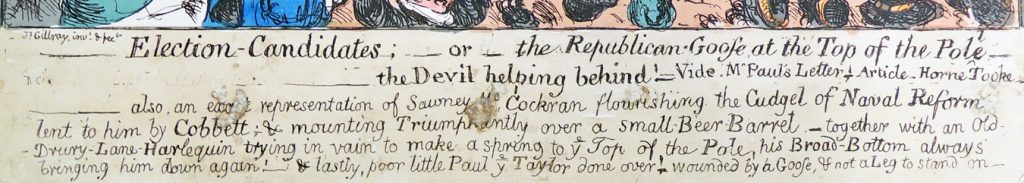 Js Gillray, invt & fect
Election-Candidates; — or — the Republican-Goose at the Top of the Pole —
— the Devil helping behind! — Vide. Mr Paul's Letter, Article. Horne Tooke.
also. an exact representation of Sawney Mc Cockran flourishing the Cudgel of Naval Reform
lent to him by Cobbett, & mounting Triumphantly over a small-Beer-Barrel — together with an Old-
-Drury-Lane-Harlequin trying in vain to make a spring to ye Top of the Pole, his Broad-Bottom always
bringing him down again! — & lastly, poor little Paul ye Taylor done over! wounded by a Goose, & not a Leg to stand on —